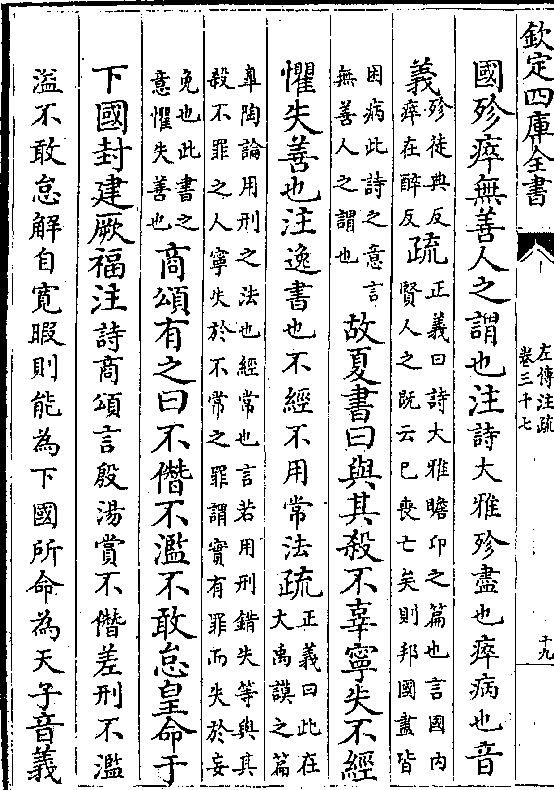 欽定四庫全書
左傳注疏
卷三十七
十九
國殄瘁無善人之謂也注詩大雅殄盡也瘁病也音
義
殄徒典反
瘁在醉反
疏
正義曰詩大雅瞻卬之篇也言國内
賢人之既云已喪亡矣則邦國盡皆
困病此詩之意言
無善人之謂也
故夏書曰與其殺不辜寧失不經
懼失善也注逸書也不經不用常法疏
正義曰此在
大禹謨之篇
臯陶論用刑之法也經常也言若用刑錯失等與其
殺不罪之人寧失於不常之罪謂實有罪而失於妄
免也此書之
意懼失善也
商頌有之曰不僭不濫不敢怠皇命于
下國封建厥福注詩商頌言殷湯賞不僭差刑不濫
溢不敢怠解自寛暇則能為下國所命為天子音義